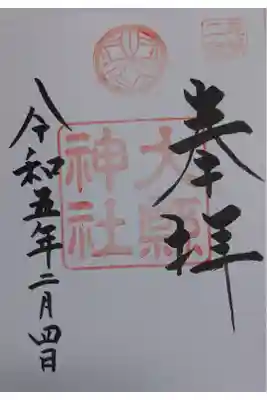 奉拝
大縣神社
令和五年二月四日